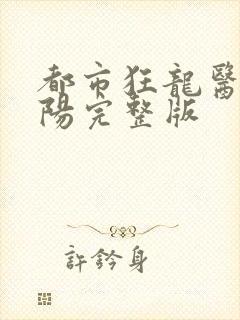 都市狂龍醫
陽完整版
許鈐身